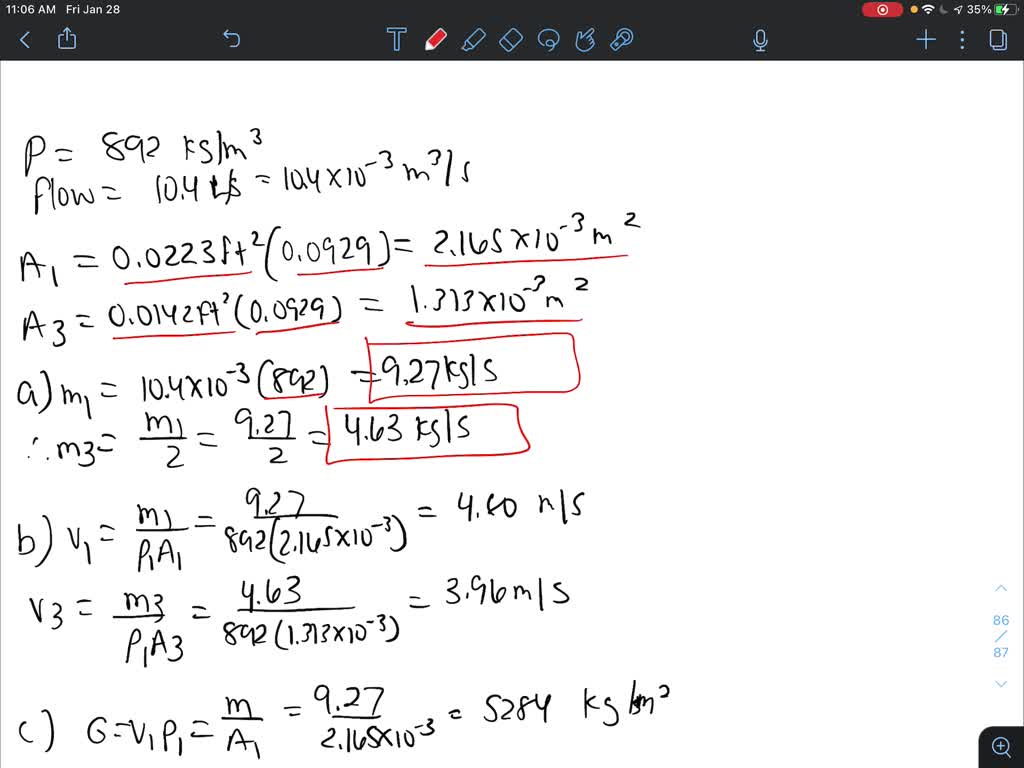 11:06 AM Fri Jan 28 35%
T
P = 892 kg/m³
flow = 10.4 L/s = 10.4×10⁻³ m³/s
A₁ = 0.0223ft² (0.0929) = 2.165×10⁻³ m²
A₃ = 0.0142ft² (0.0929) = 1.313×10⁻³ m²
a) m₁ = 10.4×10⁻³ (892) = 9.27 kg/s
∴ m₃ = m₁/2 = 9.27/2 = 4.63 kg/s
b) v₁ = m₁/P₁A₁ = 9.27/892(2.165×10⁻³) = 4.80 m/s
v₃ = m₃/P₁A₃ = 4.63/892(1.313×10⁻³) = 3.96 m/s
86
/
87
c) G = v₁P₁ = m/A₁ = 9.27/2.165×10⁻³ = 5284 kg/m²